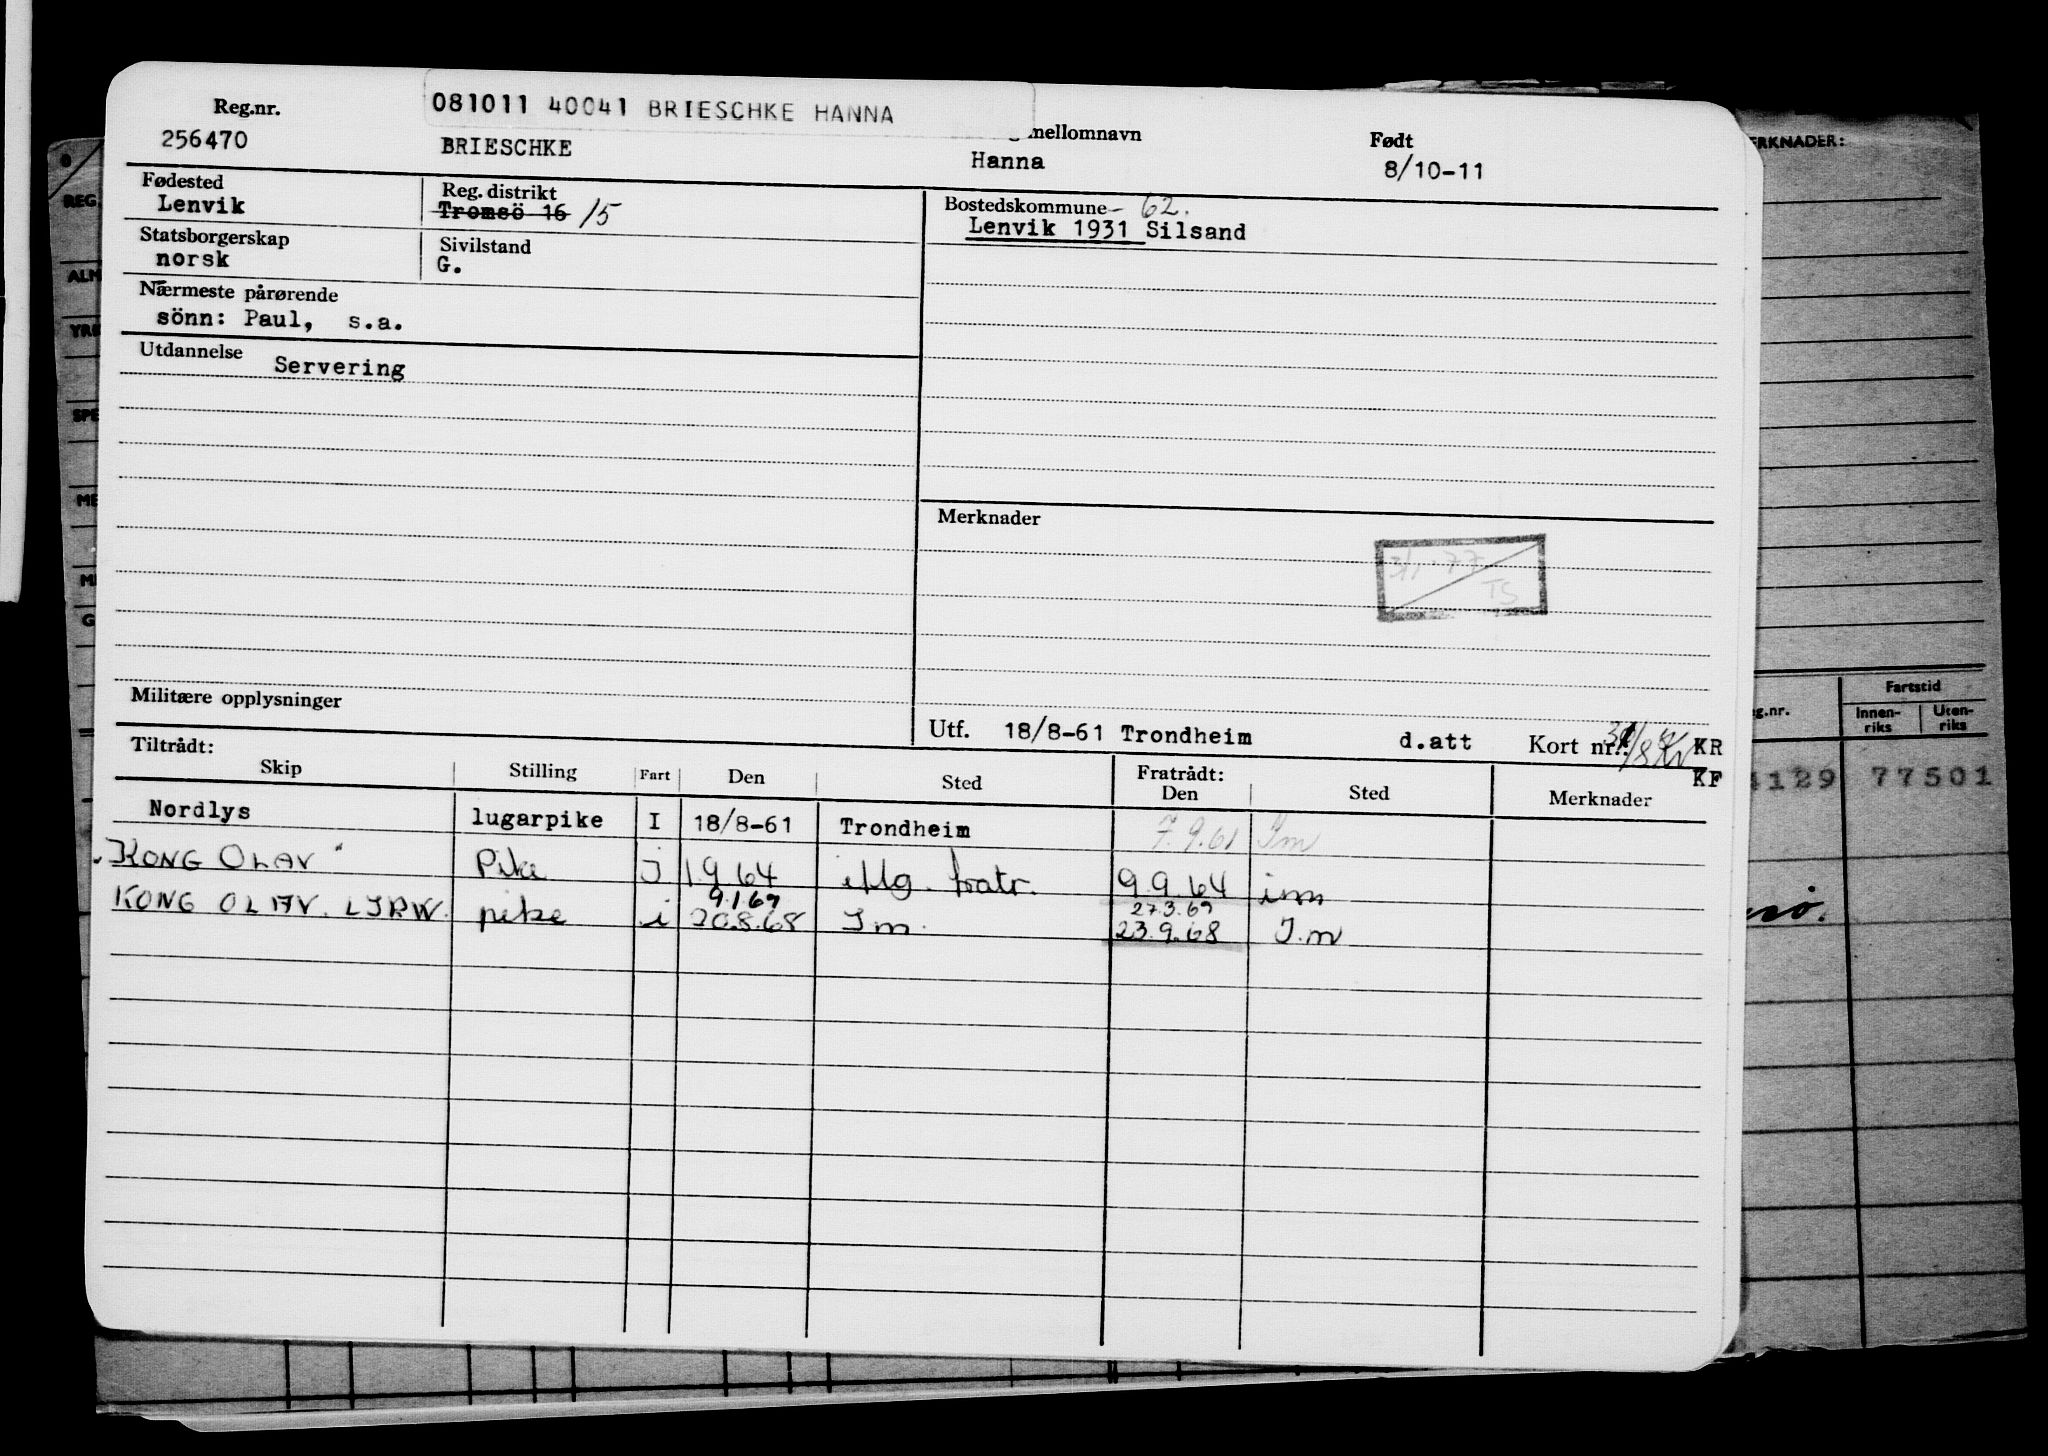 081011 40041 BRIESCHKE HANNA
Reg.nr. mellomnavn Født
256470 BRIESCHKE Hanna 8/10-11
Fødested Reg. distrikt Bostedskommune - 62.
Lenvik Tromsö 16 15 Lenvik 1931 Silsand
Statsborgerskap Sivilstand
norsk G.
Nærmeste pårørende
sönn: Paul, s.a.
Utdannelse
Servering
Merknader
3/1-77
TS
Militære opplysninger
Utf. 18/8-61 Trondheim d.att Kort nr.: KR
KF
Tiltrådt: Fratrådt:
Skip Stilling Fart Den Sted Den Sted Merknader
Nordlys lugarpike I 18/8-61 Trondheim 7.9.61 Im
"KONG OLAV" Pike J 1.9.64 iflg. fratr. 9.9.64 im
9.1.69 27.3.69
KONG OLAV. LJRW. pike i 20.8.68 Im. 23.9.68 I.m
ERKNADER:
REG.
ALM
YRK
SPE
ME
G
g.nr. Fartstid
Innen-riks Uten-riks
4129 77501